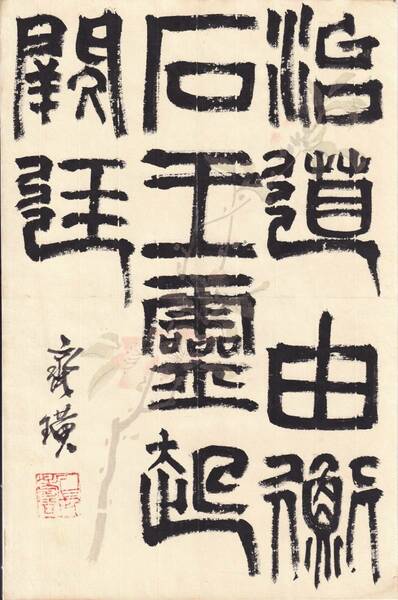 治道由衡
石王靈起
闕廷
齊璜